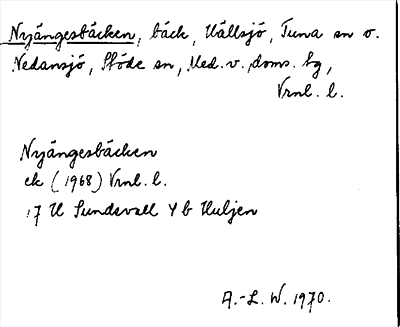 Nyängesbäcken, bäck, Vällsjö, Tuna sn o.
Nedansjö, Stöde sn, Med. v. doms. hg,
Vrnl. l.
Nyängesbäcken
ek (1968) Vrnl. l.
17 H Sundsvall 4 b Huljen
A.-L. W. 1970.